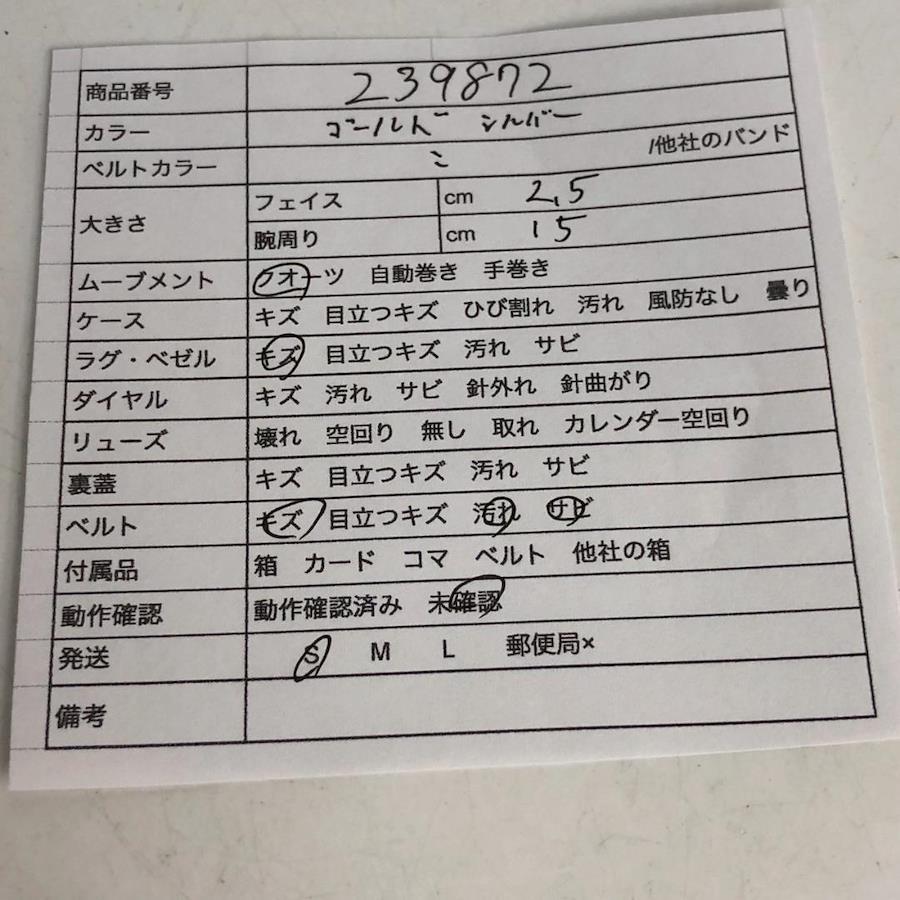 商品番号 239872
カラー ゴールド シルバー
ベルトカラー 〃 /他社のバンド
大きさ フェイス cm 2.5
腕周り cm 15
ムーブメント クオーツ 自動巻き 手巻き
ケース キズ 目立つキズ ひび割れ 汚れ 風防なし 曇り
ラグ・ベゼル キズ 目立つキズ 汚れ サビ
ダイヤル キズ 汚れ サビ 針外れ 針曲がり
リューズ 壊れ 空回り 無し 取れ カレンダー空回り
裏蓋 キズ 目立つキズ 汚れ サビ
ベルト キズ 目立つキズ 汚れ サビ
付属品 箱 カード コマ ベルト 他社の箱
動作確認 動作確認済み 未確認
発送 S M L 郵便局×
備考